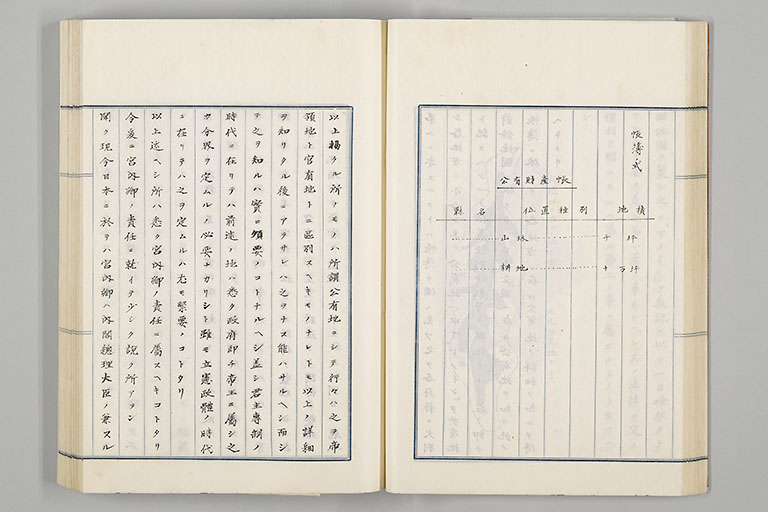 帳簿式
公有財産帳
縣名 位置種別 地積
山林 千坪
耕地 十万坪
以上揚クル所ノモノハ所謂公有地ニシテ行々ハ之ヲ帝
領地ト官有地トニ区別スヘキモノナレトモ以上ノ詳細
ヲ知リタル後ニアラサレハ之ヲナス能ハサルヘシ而シ
テ之ヲ知ルハ實ニ須要ノコトナルヘシ蓋シ君主専制ノ
時代ニ在リテハ前述ノ地ハ悉ク政府即チ帝王ニ属シ之
カ分界ヲ定ムルノ必要ナカリシト雖モ立憲政體ノ時代
ニ在リテハ之ヲ定ムルハ尤モ緊要ノコトタリ
以上述ヘシ所ハ悉ク宮内卿ノ責任ニ属スヘキコトタリ
今爰ニ宮内卿ノ責任ニ就イテ少シク説ク所アラン
聞ク現今日本ニ於テハ宮内卿ハ内閣総理大臣ノ兼スル